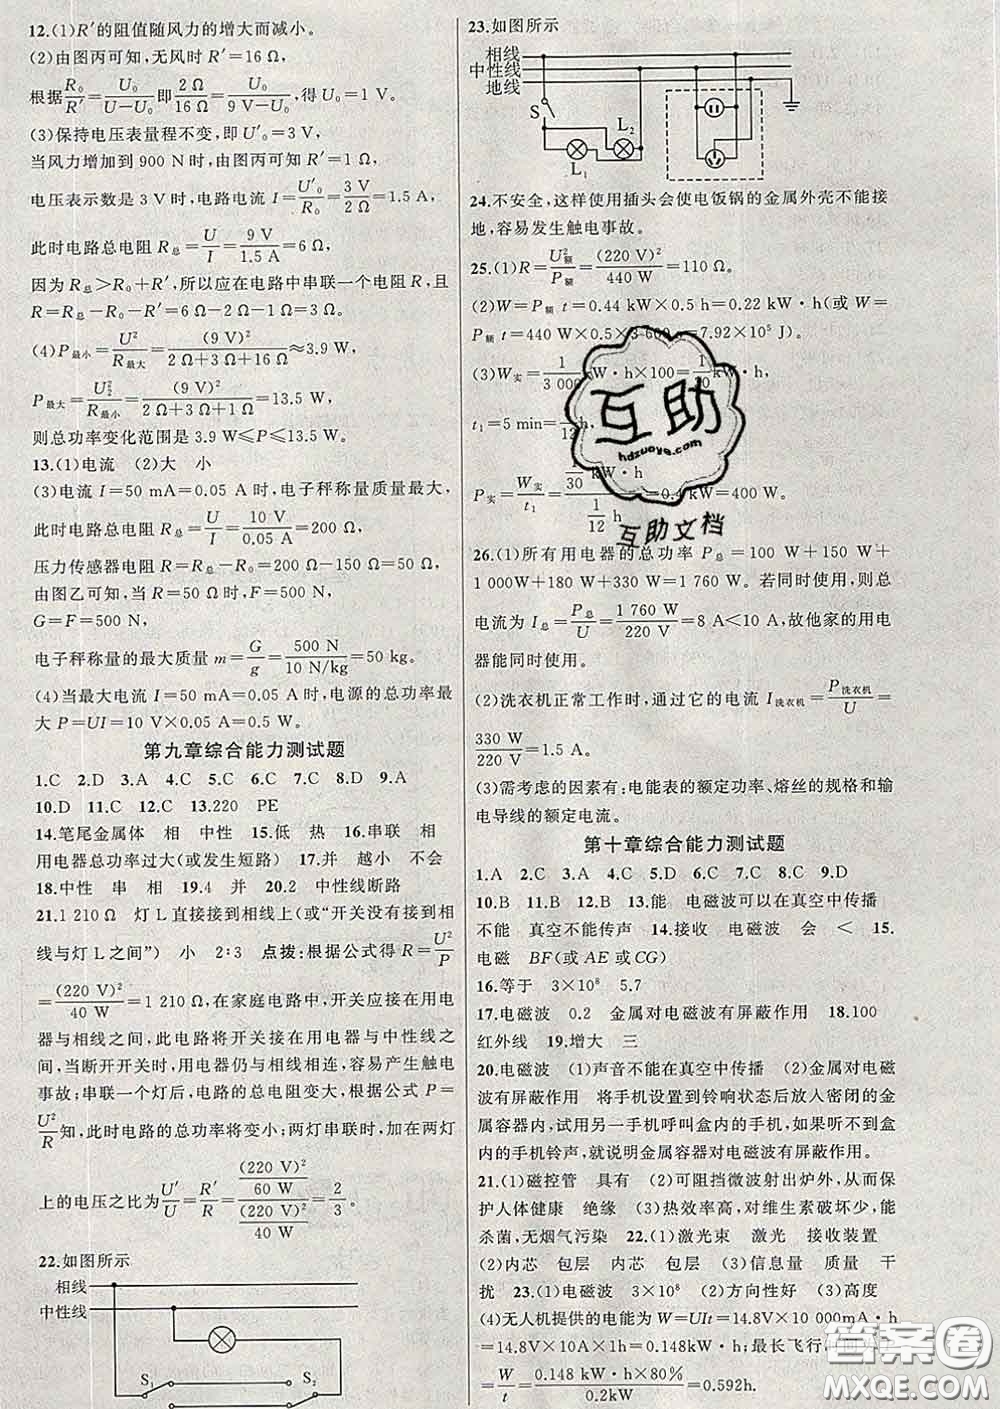 12.(1)R′的阻值随风力的增大而减小。
(2)由图丙可知,无风时 R′=16 Ω,
根据R₀/R′=U₀/(U−U₀)即2 Ω/16 Ω=U₀/(9 V−U₀),得 U₀=1 V。
(3)保持电压表量程不变,即 U′₀=3 V,
当风力增加到 900 N时,由图丙可知 R′=1 Ω,
电压表示数是 3 V时,电路电流 I=U′₀/R₀=3 V/2 Ω=1.5 A,
此时电路总电阻 R总=U/I=9 V/1.5 A=6 Ω,
因为 R总>R₀+R′,所以应在电路中串联一个电阻 R,且
R=R总−R₀−R′=6 Ω−2 Ω−1 Ω=3 Ω。
(4)P最小=U²/R最大=(9 V)²/(2 Ω+3 Ω+16 Ω)≈3.9 W,
P最大=U²/R最小=(9 V)²/(2 Ω+3 Ω+1 Ω)=13.5 W,
则总功率变化范围是 3.9 W≤P≤13.5 W。
13.(1)电流 (2)大 小
(3)电流 I=50 mA=0.05 A时,电子秤称量质量最大,
此时电路总电阻 R总=U/I=10 V/0.05 A=200 Ω,
压力传感器电阻 R=R总−R₀=200 Ω−150 Ω=50 Ω,
由图乙可知,当 R=50 Ω时,F=500 N,
G=F=500 N,
电子秤称量的最大质量 m=G/g=500 N/10 N/kg=50 kg。
(4)当最大电流 I=50 mA=0.05 A时,电源的总功率最
大 P=UI=10 V×0.05 A=0.5 W。
第九章综合能力测试题
1.C 2.D 3.A 4.C 5.C 6.C 7.C 8.D 9.A
10.D 11.C 12.C 13.220 PE
14.笔尾金属体 相 中性 15.低 热 16.串联 相
用电器总功率过大(或发生短路) 17.并 越小 不会
18.中性 串 相 19.4 并 20.2 中性线断路
21.1 210 Ω 灯 L直接接到相线上(或“开关没有接到相
线与灯 L之间”) 小 2∶3 点拨:根据公式得 R=U²/P
=(220 V)²/40 W=1 210 Ω,在家庭电路中,开关应接在用电
器与相线之间,此电路将开关接在用电器与中性线之
间,当断开开关时,用电器仍与相线相连,容易产生触电
事故;串联一个灯后,电路的总电阻变大,根据公式 P=
U²/R知,此时电路的总功率将变小;两灯串联时,加在两灯
上的电压之比为U′/U=R′/R=((220 V)²/60 W)/((220 V)²/40 W)=2/3。
22.如图所示
相线
中性线
S₁ S₂
23.如图所示
相线
中性线
地线
S
L₂
L₁
24.不安全,这样使用插头会使电饭锅的金属外壳不能接
地,容易发生触电事故。
25.(1)R=U²额/P额=(220 V)²/440 W=110 Ω。
(2)W=P额 t=0.44 kW×0.5 h=0.22 kW·h(或 W=
P额 t=440 W×0.5×3 600 s=7.92×10⁵ J)。
(3)W实=1/3 000 kW·h×100=1/30 kW·h,
t₁=5 min=1/12 h,
P实=W实/t₁=(1/30 kW·h)/(1/12 h)=0.4 kW=400 W。
26.(1)所有用电器的总功率 P总=100 W+150 W+
1 000W+180 W+330 W=1 760 W。若同时使用,则总
电流为 I总=P总/U=1 760 W/220 V=8 A<10 A,故他家的用电
器能同时使用。
(2)洗衣机正常工作时,通过它的电流 I洗衣机=P洗衣机/U=
330 W/220 V=1.5 A。
(3)需考虑的因素有:电能表的额定功率、熔丝的规格和输
电导线的额定电流。
第十章综合能力测试题
1.A 2.C 3.A 4.D 5.C 6.C 7.C 8.C 9.D
10.B 11.B 12.B 13.能 电磁波可以在真空中传播
不能 真空不能传声 14.接收 电磁波 会 < 15.
电磁 BF(或 AE 或 CG)
16.等于 3×10⁸ 5.7
17.电磁波 0.2 金属对电磁波有屏蔽作用 18.100
红外线 19.增大 三
20.电磁波 (1)声音不能在真空中传播 (2)金属对电磁
波有屏蔽作用 将手机设置到铃响状态后放入密闭的金
属容器内,试用另一手机呼叫盒内的手机,如果听不到盒
内手机铃声,就说明金属容器对电磁波有屏蔽作用。
21.(1)磁控管 具有 (2)可阻挡微波射出炉外,从而保
护人体健康 绝缘 (3)热效率高,对维生素破坏少,能
杀菌,无烟气污染 22.(1)激光束 激光 接收装置
(2)内芯 包层 内芯 包层 (3)信息量 质量 干
扰 23.(1)电磁波 3×10⁸ (2)方向性好 (3)高度
(4)无人机提供的电能为 W=UIt=14.8V×10 000mA·h
=14.8V×10A×1h=0.148kW·h;最长飞行
=W/t=0.148 kW·h×80%/0.2kW=0.592h.
互助
hdzuoye.com
互助文档
答案圈
MXQE.COM